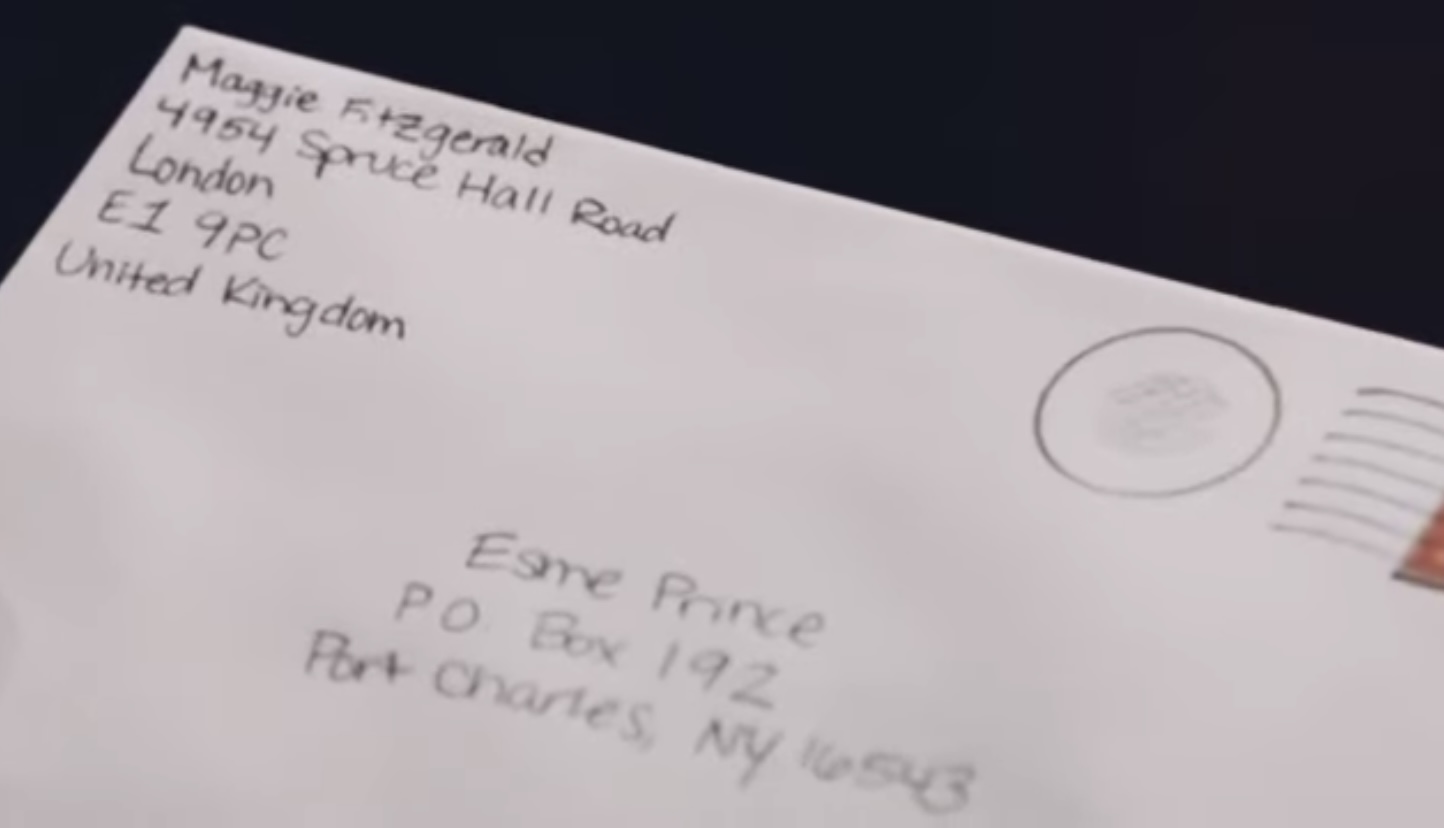 Maggie Fitzgerald
4954 Spruce Hall Road
London
E1 9PC
United Kingdom
Esme Prince
P.O. Box 192
Port Charles, NY 16543